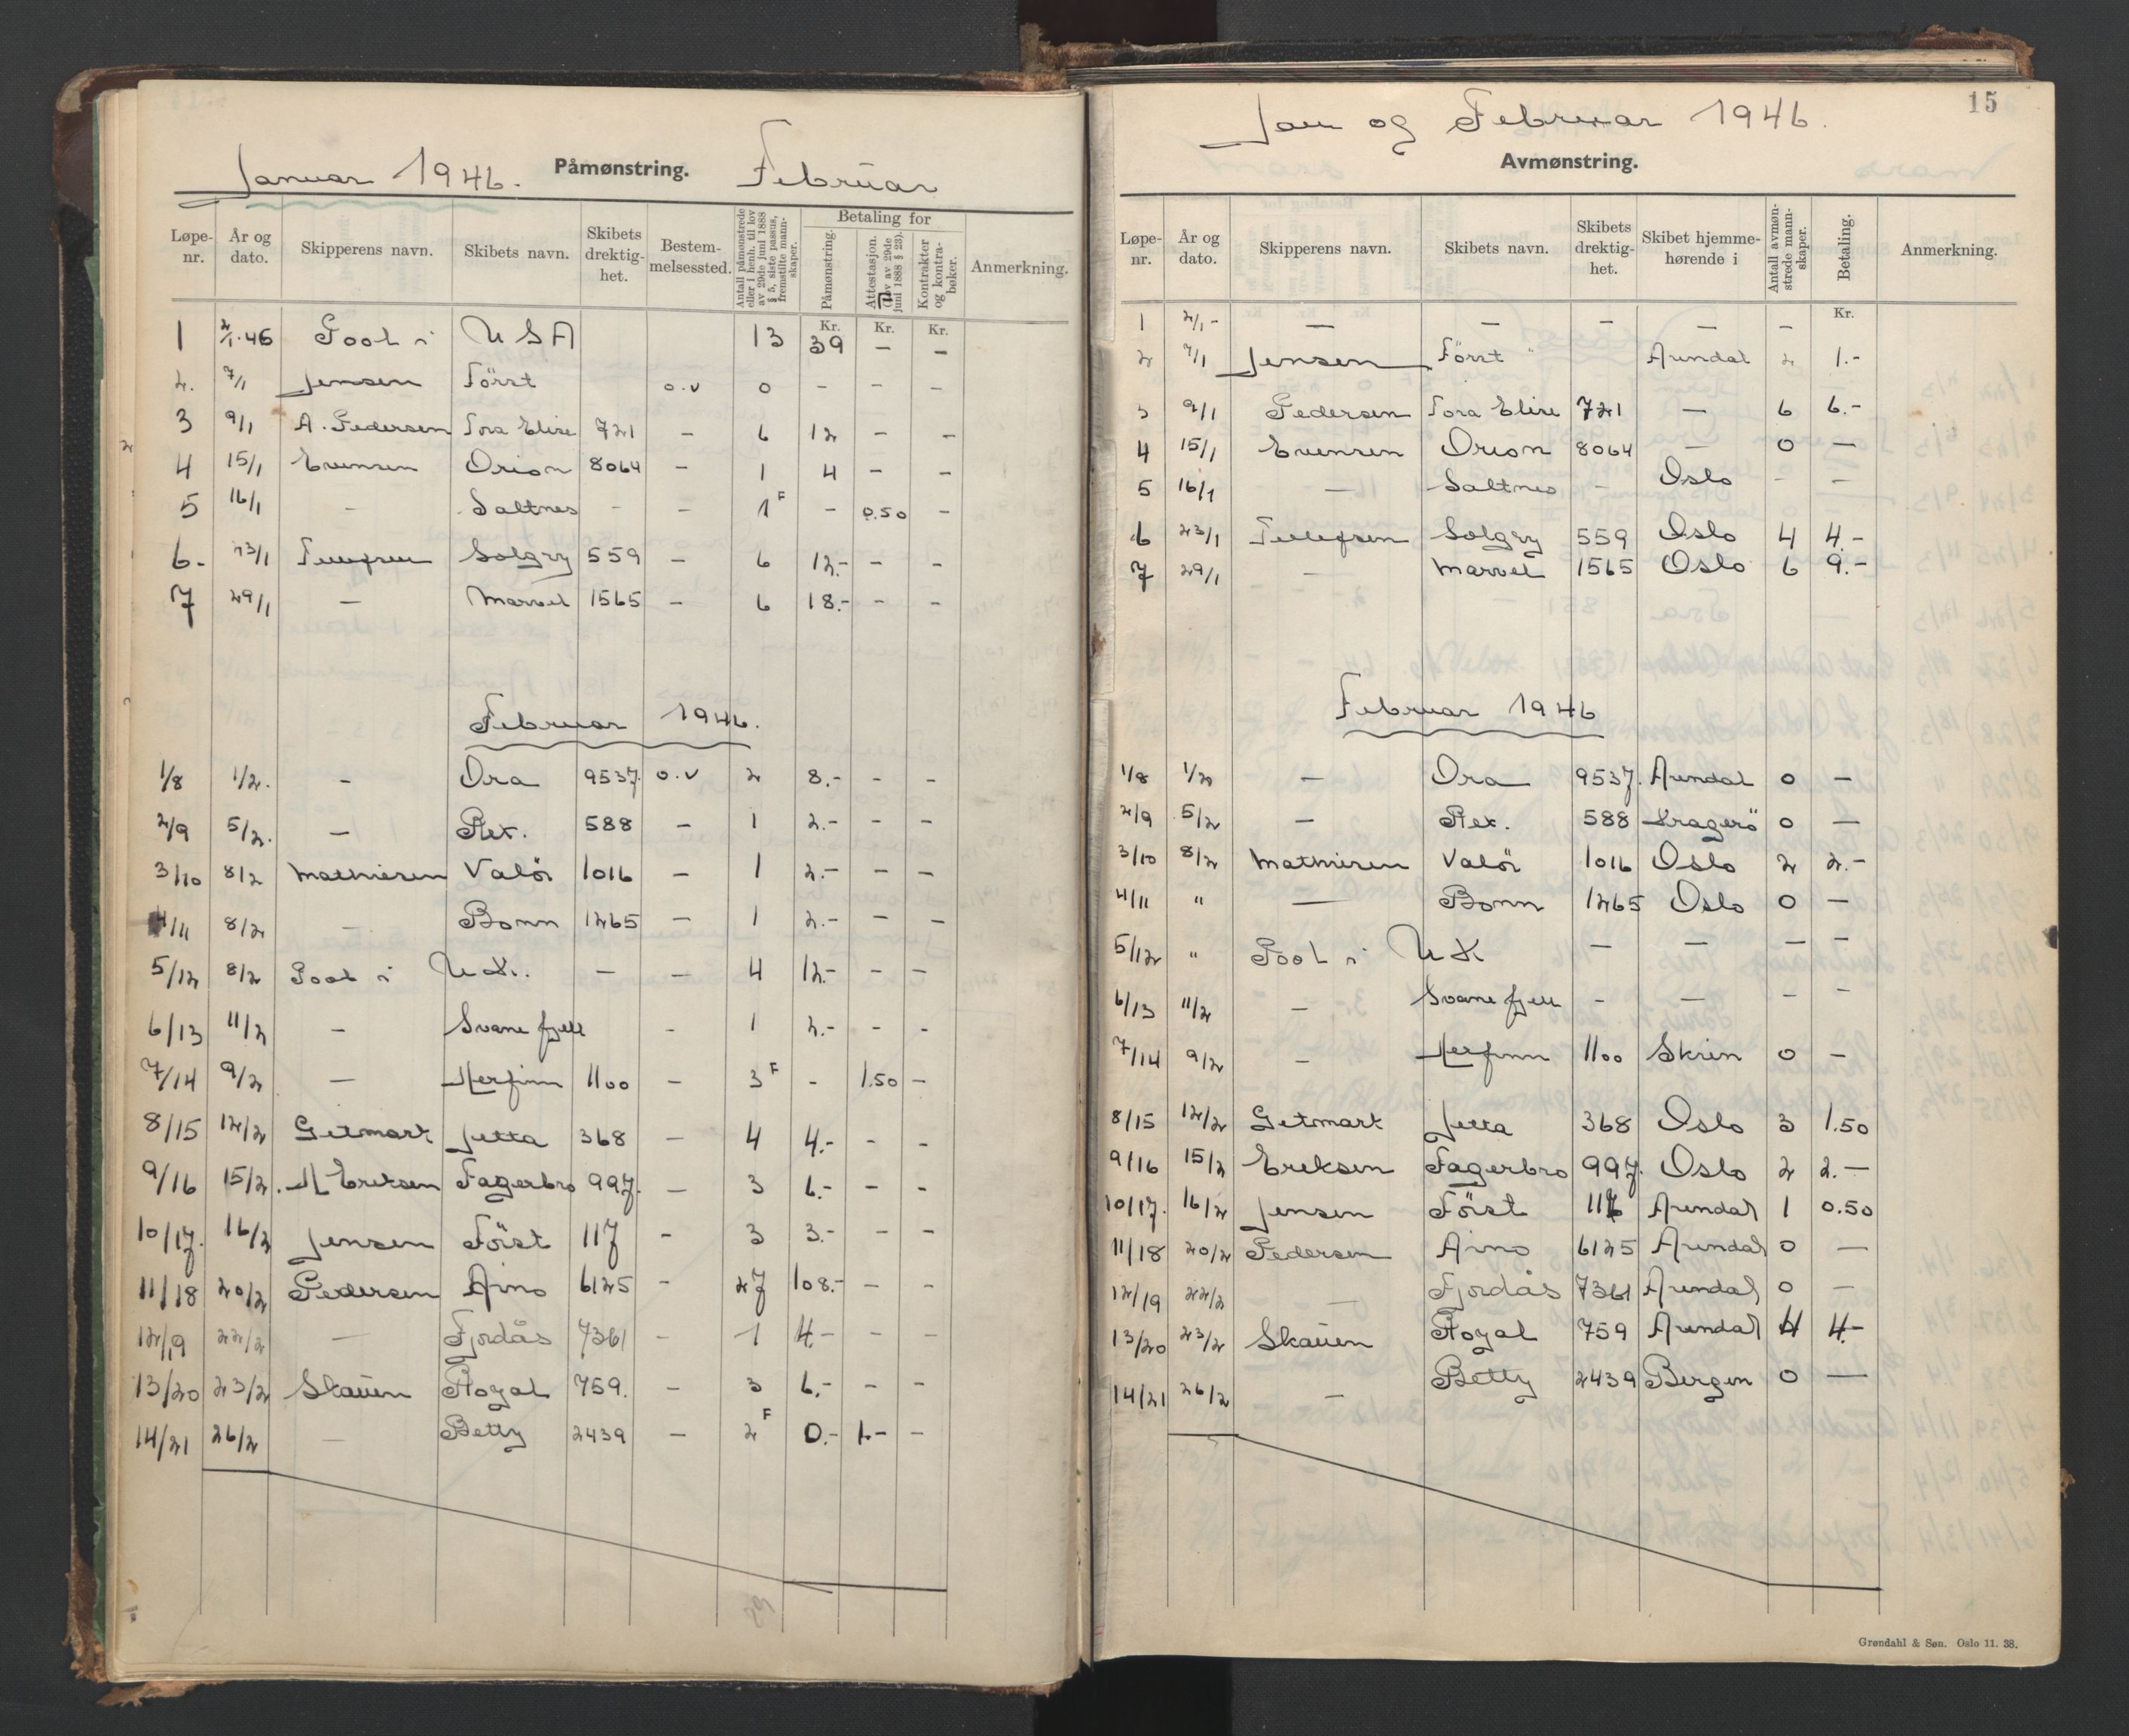 Januar 1946. Påmønstring. Februar
Løpe-nr. År og dato. Skipperens navn. Skibets navn. Skibets drektig-het. Bestem-melsessted. Antall påmønstrede eller i henh. til lov av 29de juni 1888 § 5, siste passus, fremstilte mann-skaper. Betaling for Påmønstring. Attestasjon. (Lov av 29de juni 1888 § 23). Kontrakter og kontra-bøker. Anmerkning.
Kr. Kr. Kr.
1 2/1.46 Pool i U S A 13 39 — —
2. 7/1 Jensen Förrt o.v 0 - - -
3 9/1 A. Pedersen Tora Elise 721 - 6 12 - -
4 15/1 Evensen Orion 8064 - 1 4 - -
5 16/1 - Saltnes - - 1 F - 0.50 -
6. 23/1 Solgry 559 - 6 12.- - -
7 29/1 - Marvel 1565 - 6 18.- - -
Februar 1946.
1/8 1/2. - Ora 9537. o.v 2 8.- - -
2/9 5/2. - Rex. 588 - 1 2.- - -
3/10 8/2 Mathiesen Valör 1016 - 1 2.- - -
4/11 8/2 - Bonn 1265 - 1 2.- - -
5/12 8/2 Pool i U.K. - - 4 12.- - -
6/13 11/2 - Svanefjell - 1 2.- - -
7/14 9/2 - Herfinn 1100 - 3 F - 1.50 -
8/15 12/2 Getmark Jetta 368 - 4 4.- - -
9/16 15/2. H Eriksen Fagerbro 997. - 3 6.- - -
10/17. 16/2 Jensen Föist 117 - 3 3.- - -
11/18 20/2 Pedersen Aino 6125 - 27 108.- - -
12/19 22/2 - Fjordås 7361 - 1 4.- - -
13/20 23/2 Skauen Royal 759. - 3 6.- - -
14/21 26/2 - Betty 2439 - 2 F 0.- 1.- -
15
Jan og Februar 1946.
Avmønstring.
Løpe-nr. År og dato. Skipperens navn. Skibets navn. Skibets drektig-het. Skibet hjemme-hørende i Antall avmøn-strede mann-skaper. Betaling. Anmerkning.
Kr.
1 2/1- - - - - -
2 7/1 Jensen Förrt Arendal 2 1.-
3 9/1 Pedersen Tora Elise 721 - 6 6.-
4 15/1 Evensen Orion 8064 - 0 -
5 16/1 - Saltnes - Oslo - -
6 23/1 Tellefsen Solgry 559 Oslo 4 4.-
7 29/1 - Marvel 1565 Oslo 6 9.-
Februar 1946
1/8 1/2 - Ora 9537. Arendal 0 -
2/9 5/2 - Rex. 588 Kragerö 0 -
3/10 8/2 Mathiesen Valör 1016 Oslo 2 2.-
4/11 " - Bonn 1265 Oslo 0 -
5/12 " Pool i U K - - - -
6/13 11/2 - Svanefjell - - - -
7/14 9/2 - Herfinn 1100 Skien 0 -
8/15 12/2 Getmark Jetta 368 Oslo 3 1.50
9/16 15/2 Eriksen Fagerbro 997. Oslo 2 2.-
10/17. 16/2 Jensen Föist Arendal 1 0.50
11/18 20/2 Pedersen Aino 6125 Arendal 0 -
12/19 22/2 - Fjordås 7361 Arendal 0 -
13/20 23/2 Skauen Royal 759 Arendal 4 4.-
14/21 26/2 - Betty 2439 Bergen 0 -
Grøndahl & Søn. Oslo 11. 38.